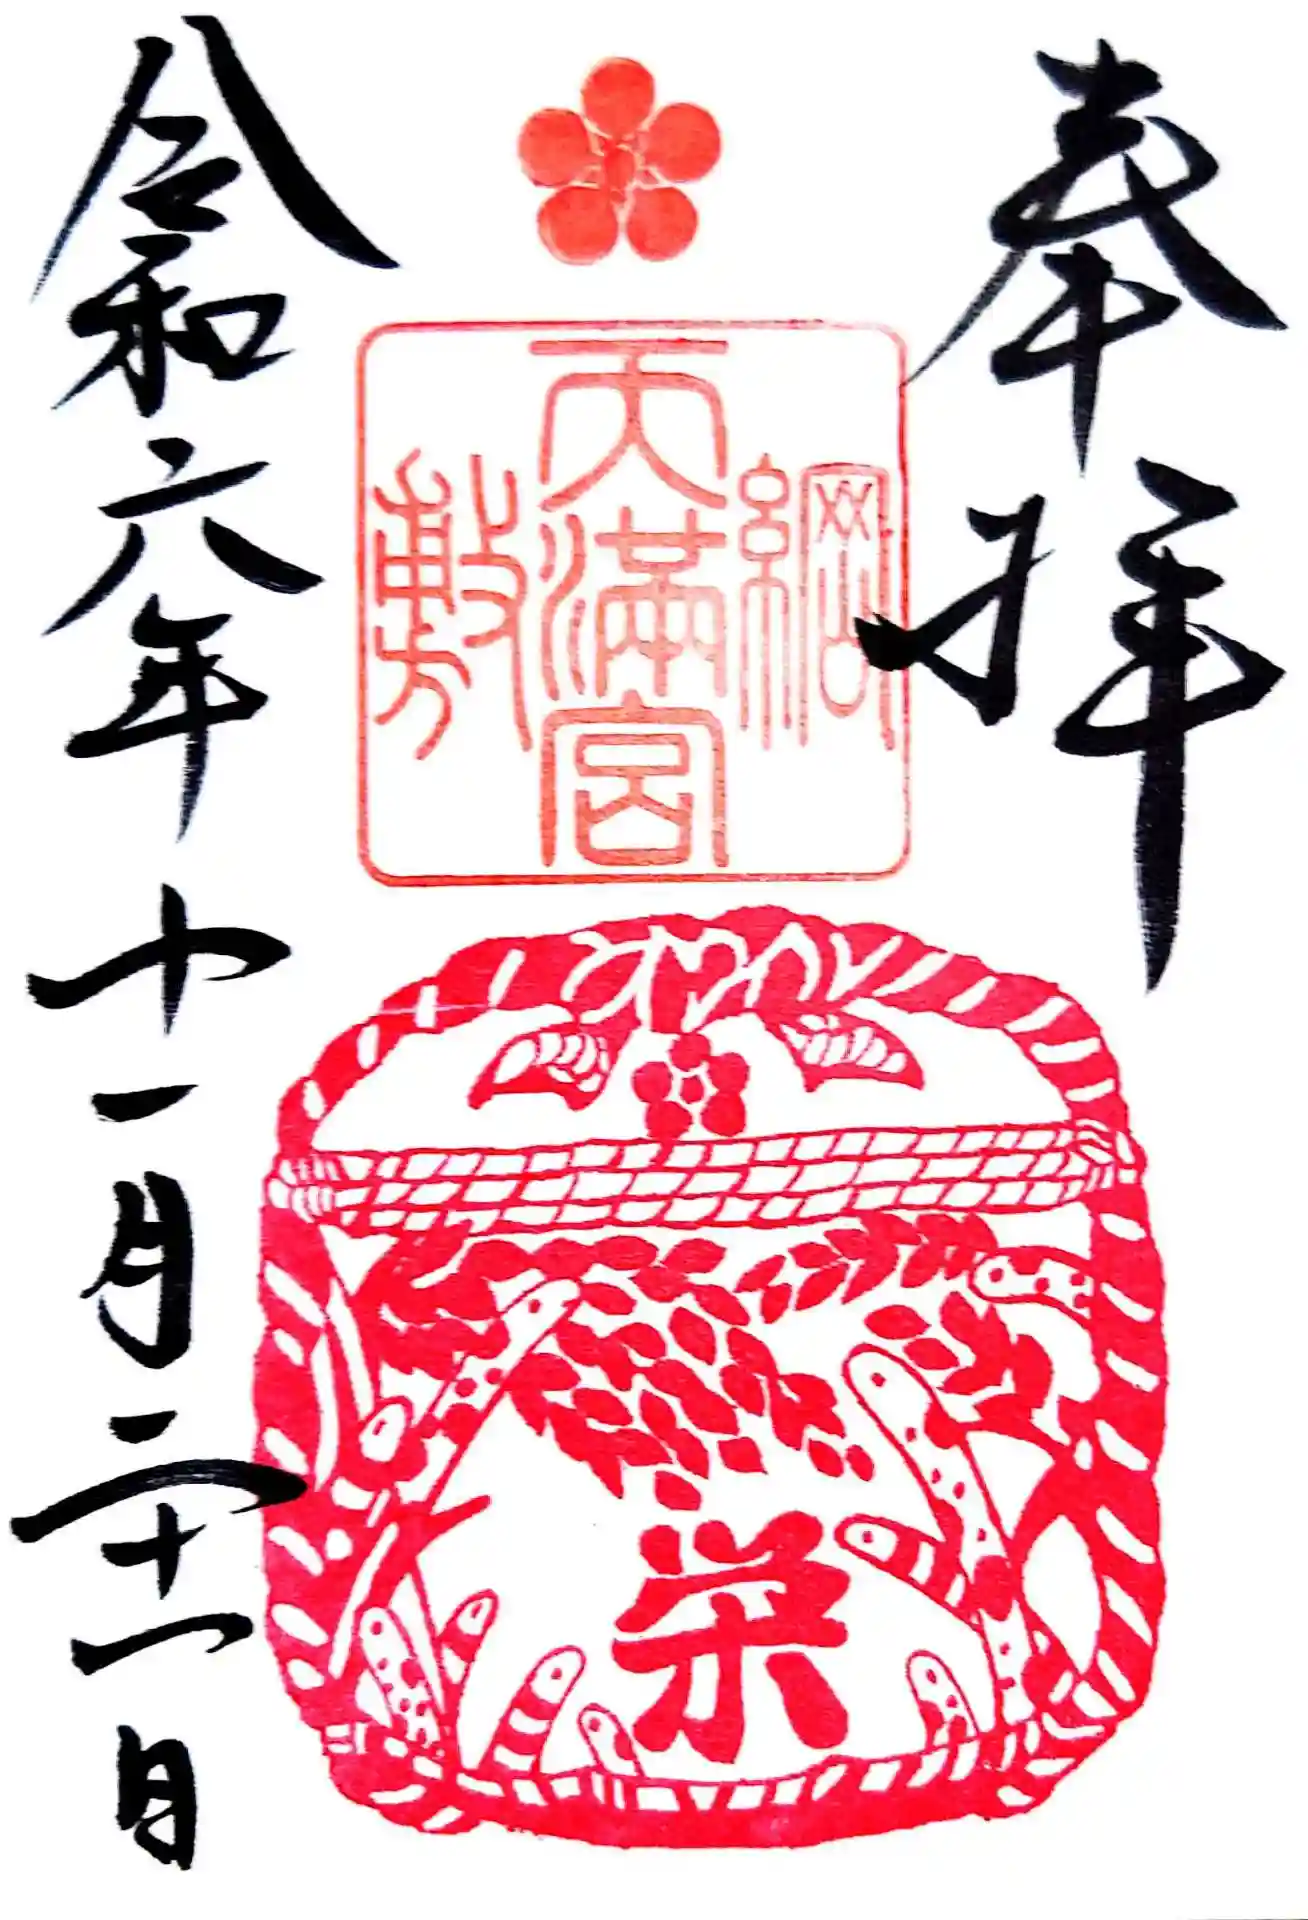 奉拝
綱敷天満宮
栄
令和六年十一月二十一日